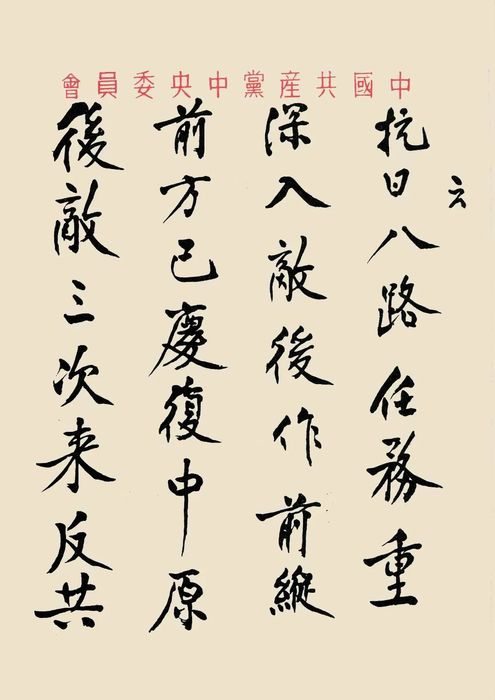 中國共産黨中央委員會
云
抗日八路任務重
深入敵後作前縱
前方已慶復中原
後敵三次来反共